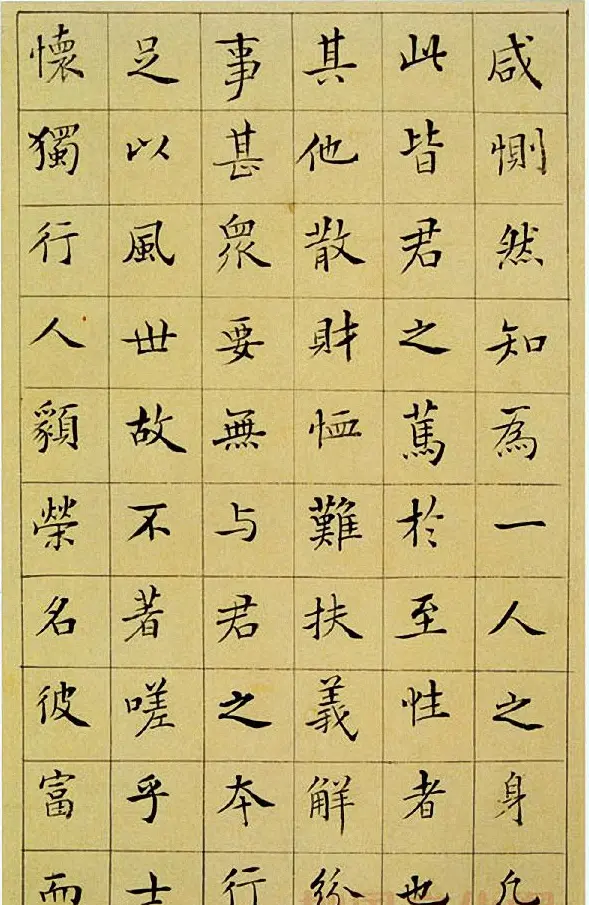 咸惻然知為一人之身凡
此皆君之篤於至性者也
其他散財恤難扶義解紛
事甚眾要無与君之本行
足以風世故不著嗟乎士
懷獨行人顥榮名彼富而